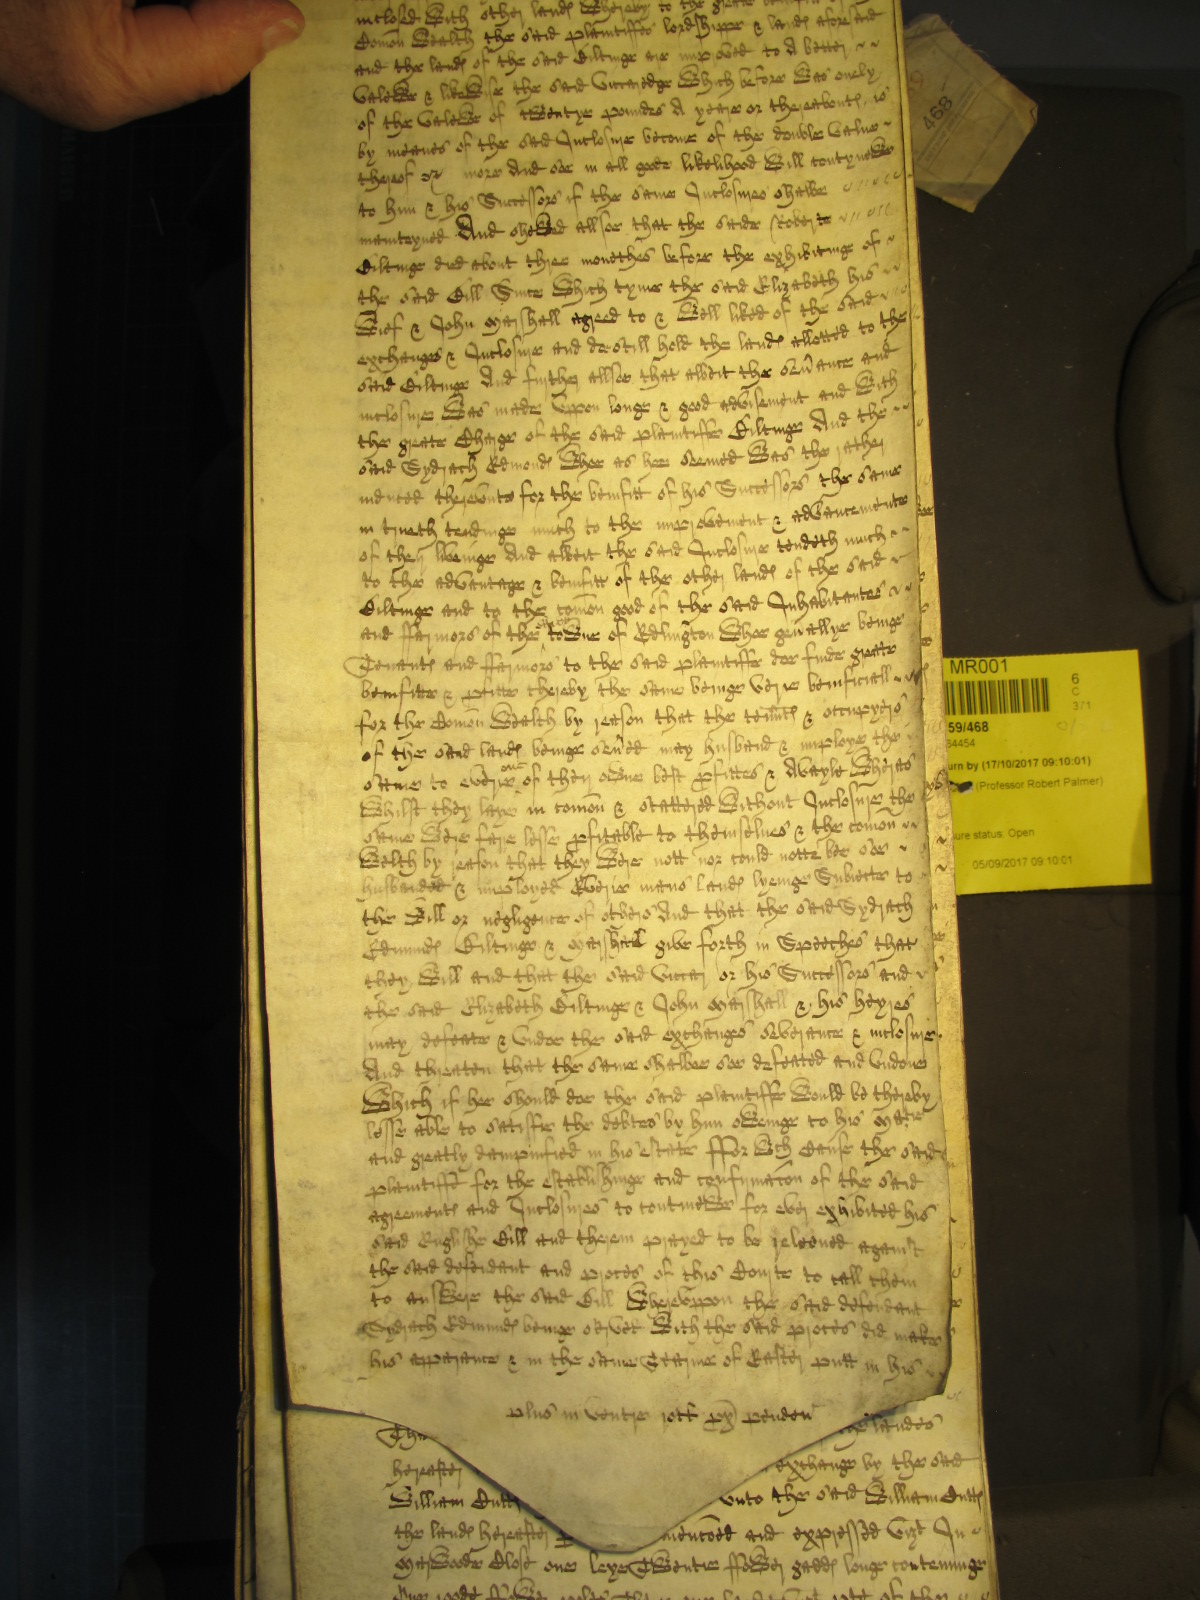 inclosed With other landes Whereby to the greate benefitt
Comon Wealth the said plaintiffes lordshippe & landes aforesaid
and the landes of the said Ciltinge are improved to A better
Valewe & likeWise the said Viccaredge Which before Was onely
of the ValeWe of tWentye poundes A yeare or thereaboutes is
by meanes of the said Inclosure become of the double Value
thereof or more And soe in all good likelihood Will contynewe
to him & his Successors if the same Inclosures shalbe
mainteyned And sheWed allsoe that the saide Roberte
Ciltinge died about three monethes before the exhibitinge of
the said Bill Since Which tyme the said Elizabeth his
Wief & John Marshall agreed to & Well liked of the said
exchanges & Inclosure and doe still hold the landes allotted to the
said Ciltinge And further allsoe that albeit the severance and
inclosure Was made Vppon longe & good advisement and With
the greate Charge of the said plaintiffe Ciltinge And the
said Sydrach Edmondes Whoe as hee seemed Was the rather
induced therevnto for the benifitt of his Successors the same
in trueth tendinge much to the improvement & advancemente
of their liveinge And albeit the said Inclosure tendeth much
to the advantage & benifitt of the other landes of the said
Ciltinge and to the comon good of the said Inhabitantes
and ffarmors of the toWne of Edlington Whoe generallye beinge
Tenantes and ffarmors to the said plaintiffe doe finde greate
benifitte & profitte thereby the same beinge verie benificiall
for the Comon Wealth by reason that the tenantes & occupyers
of the said landes beinge severed may husband & imploye the
same to everie one of their oWne best profittes & Avayle Whereas
Whilst they laye in comon & scattered Without Inclosure the
same Were farre lesse profitable to themselves & the comon
Welth by reason that they Were nott nor could notte bee soe
husbanded & imployed Everie mans landes lyeinge Subiecte to
the Will or negligence of others And that the said Sydrach
Edmundes Ciltinge & Marshall give forth in Speeches that
they Will and that the said Viccar or his Successors and
the said Elizabeth Ciltinge & John Marshall & his heyres
may defeate & Vndoe the said exchanges severance & inclosure
And threaten that the same shalbee soe defeated and Vndone
Which if hee should doe the said plaintiffe Would be thereby
lesse able to satisfie the debtes by him oWeinge to his Matie
and greatly dampnified in his estate ffor Wch Cause the said
plaintiffe for the establishinge and confirmacon of the said
agreementes and Inclosures to contineWe for ever exhibited his
said Englishe Bill and therein prayed to be releived against
the said defendant and proces of this Courte to call them
to ansWere the said Bill Wherevppon the said defendant
Sydrach Edmundes beinge served With the said proces did make
his apparance & in the same Tearme of Easter putt in his
plus in ventre istius
The landes
hereafter exchange by the said
William vnto the said William
the landes hereafter mencoed and expressed vizt In
MarWoode Close one leye TWentie ffoWer gaddes longe conteininge
468
MR001
6
C
3/1
59/468
34454
urn by (17/10/2017 09:10:01)
(Professor Robert Palmer)
ure status: Open
05/09/2017 09:10:01